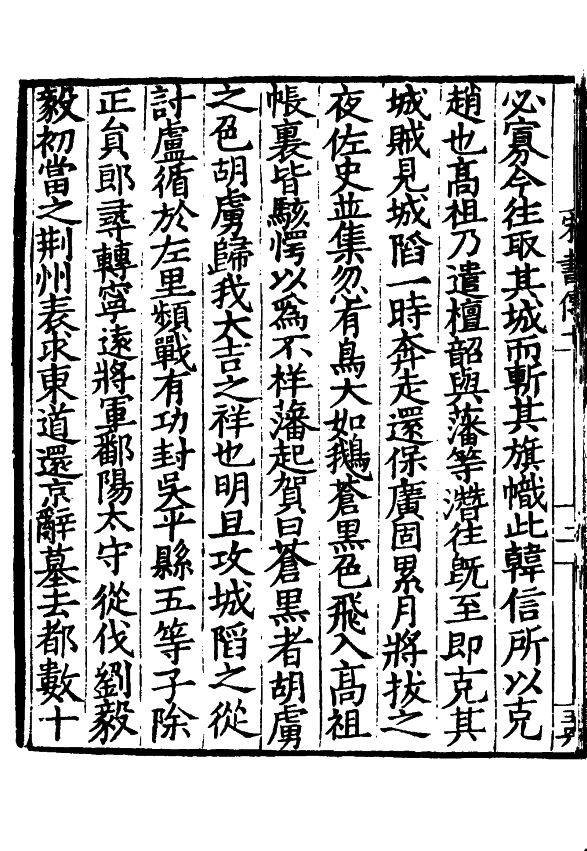 必寡今往取其城而斬其旗幟此韓信所以克
趙也高祖乃遣檀韶與藩等潛往既至即克其
城賊見城陷一時奔走還保廣固累月將拔之
夜佐史並集忽有鳥大如鵝蒼黒色飛入高祖
帳裏皆駭愕以為不祥藩起賀曰蒼黒者胡虜
之色胡虜歸我大吉之祥也明旦攻城陷之從
討盧循於左里頻戰有功封吳平縣五等子除
正貟郎尋轉寧遠將軍鄱陽太守從伐劉毅
毅初當之荆州表求東道還京辭墓去都數十